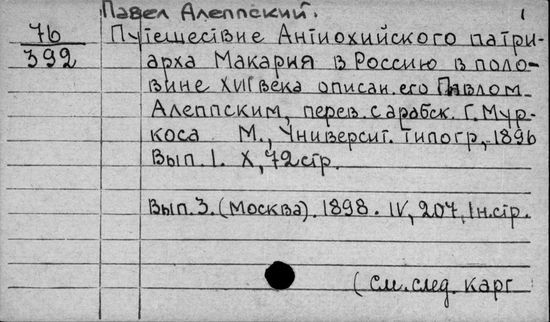 Павел Алеппский.
1
76
392
Путешествие Антиохийского патри-
арха Макария в Россию в поло-
вине XVII века описан. его Павлом
Алеппским, перев. с арабск. Г. Мур-
коса М., Университ. типогр., 1896
Вып. 1. X, 72 стр.
Вып. 3. (Москва). 1898. IV, 207, 1н. стр.
(См. след. карт